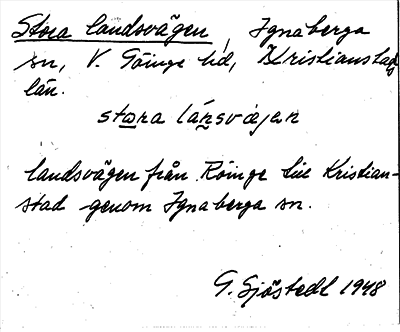 Stora landsvägen, Ignaberga
sn, V. Göinge hd, Kristianstads
län.
stora lánsvägen
landsvägen från Röinge till Kristian-
stad genom Ignaberga sn.
G. Sjöstedt 1948